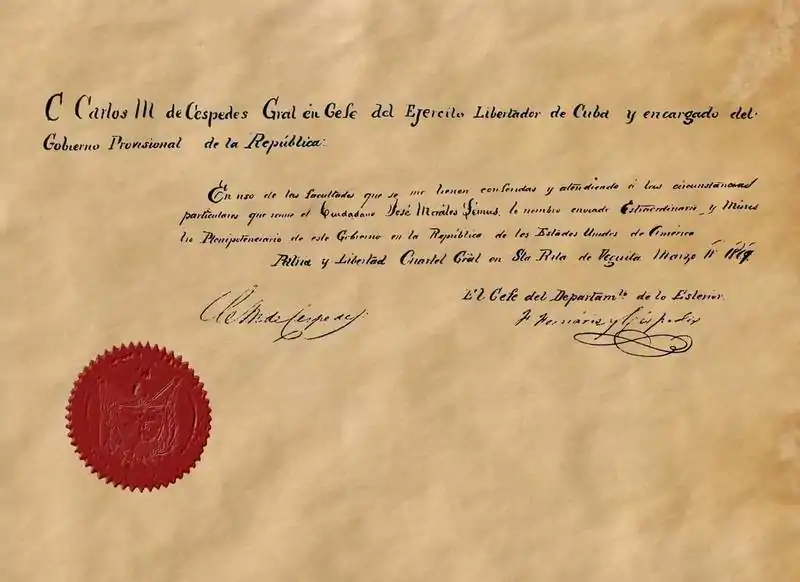 C Carlos M de Céspedes Gral en Gefe del Ejercito Libertador de Cuba y encargado del
Gobierno Provisional de la República:
En uso de las facultades que se me tienen conferidas y atendiendo á las circunstancias
particulares que reune el Ciudadano José Morales Lemus, le nombro enviado Extraordinario y Minis
tro Plenipotenciario de este Gobierno en la República de los Estados Unidos de América
Patria y Libertad Cuartel Gral en Sta Rita de Yeguita Marzo 1869
El Gefe del Departamto de lo Esterior.
C. M. de Céspedes
F Fornáris y Céspedes